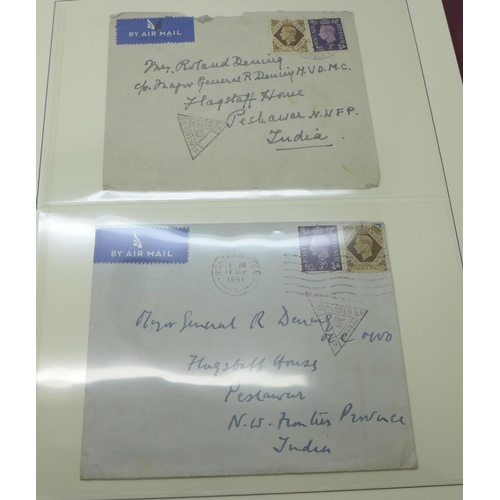 BY AIR MAIL
Mrs. Roland Dening
c/o Major General R Dening M.V.O. M.C.
Flagstaff House
Peshawar N.W.F.P.
India
BY AIR MAIL
1941
Major General R Dening
MC MVO
Flagstaff House
Peshawar
N.W. Frontier Province
India